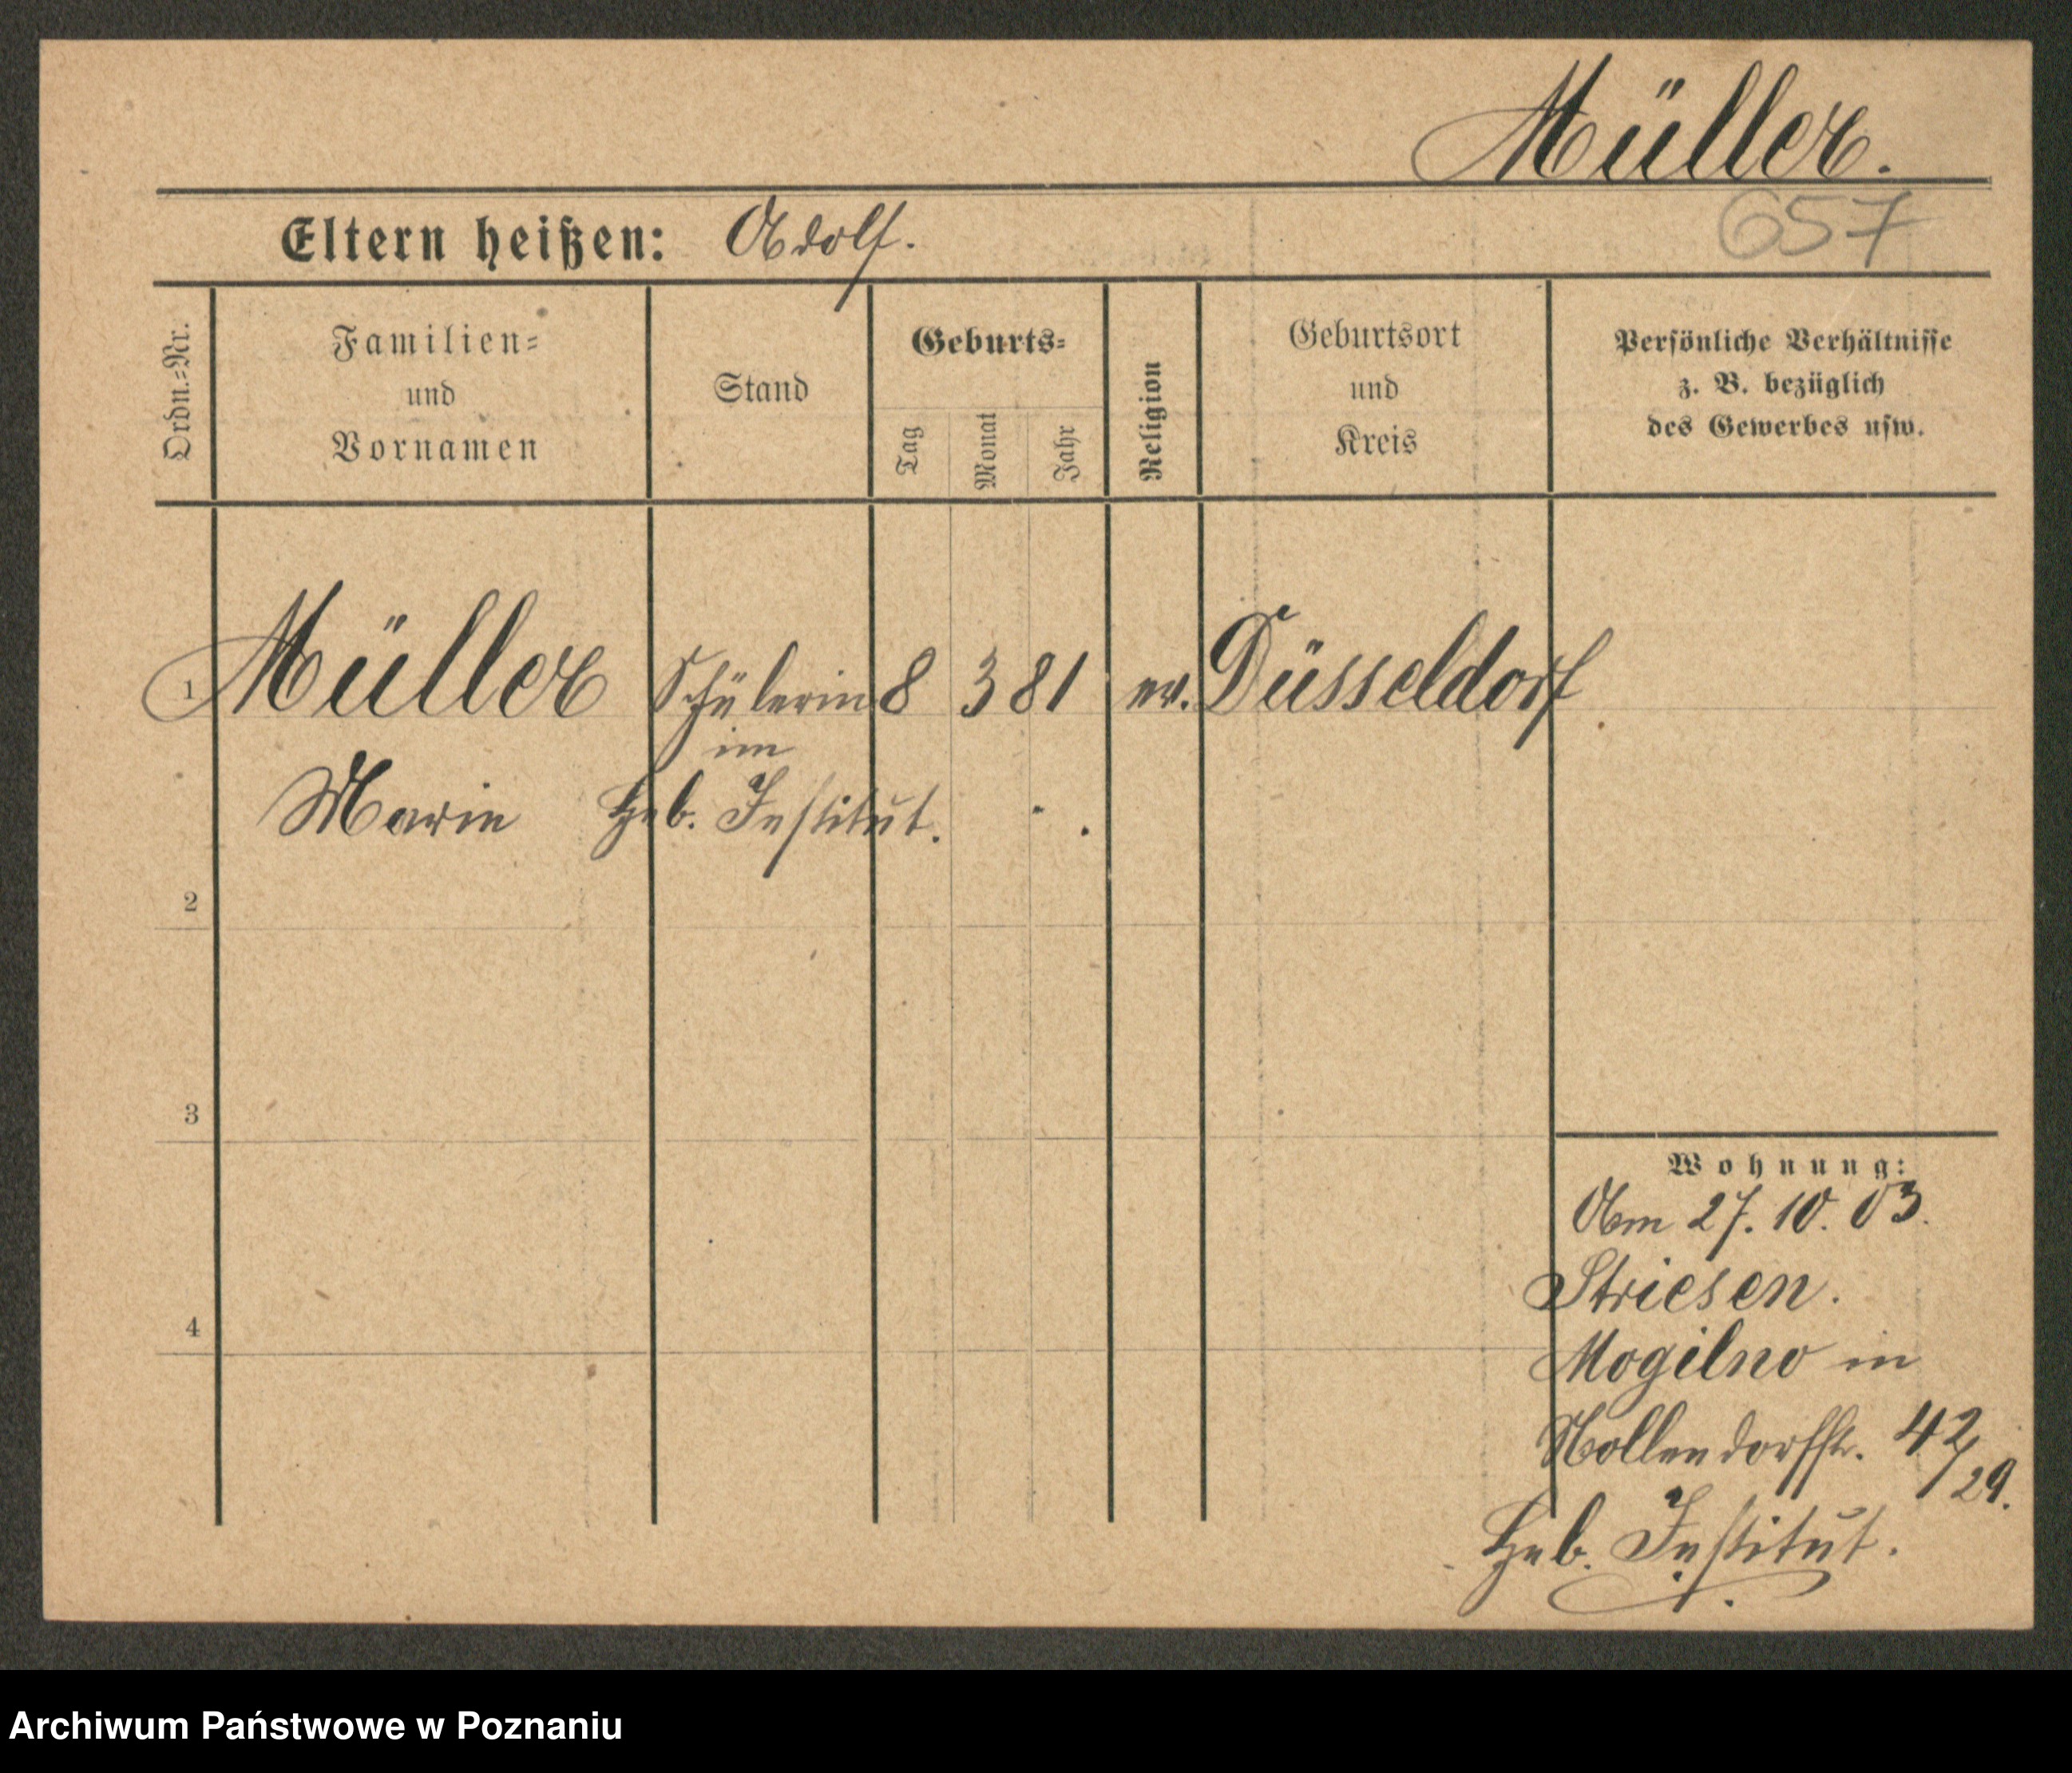 Müller.
657
Eltern heißen: Adolf.
Ordn.-Nr.
Familien-
und
Vornamen
Stand
Geburts-
Tag
Monat
Jahr
Religion
Geburtsort
und
Kreis
Persönliche Verhältnisse
z. B. bezüglich
des Gewerbes usw.
1 Müller Schülerin 8 3 81 ev. Düsseldorf
im
Marie Heb. Institut.
2
3
4
Wohnung:
Am 27. 10. 03.
Striesen.
Mogilno in
Nollendorfstr. 42/29.
Heb. Institut.
Archiwum Państwowe w Poznaniu